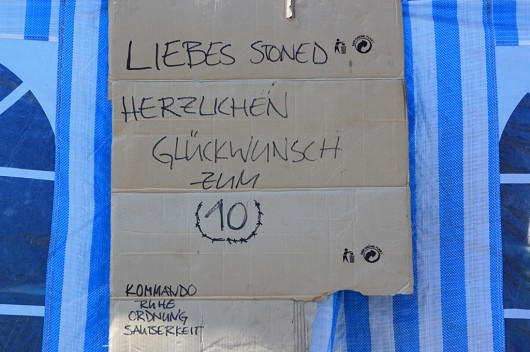 LIEBES STONED
HERZLICHEN
GLÜCKWUNSCH
ZUM
10
KOMMANDO
RUHE
ORDNUNG
SAUBERKEIT